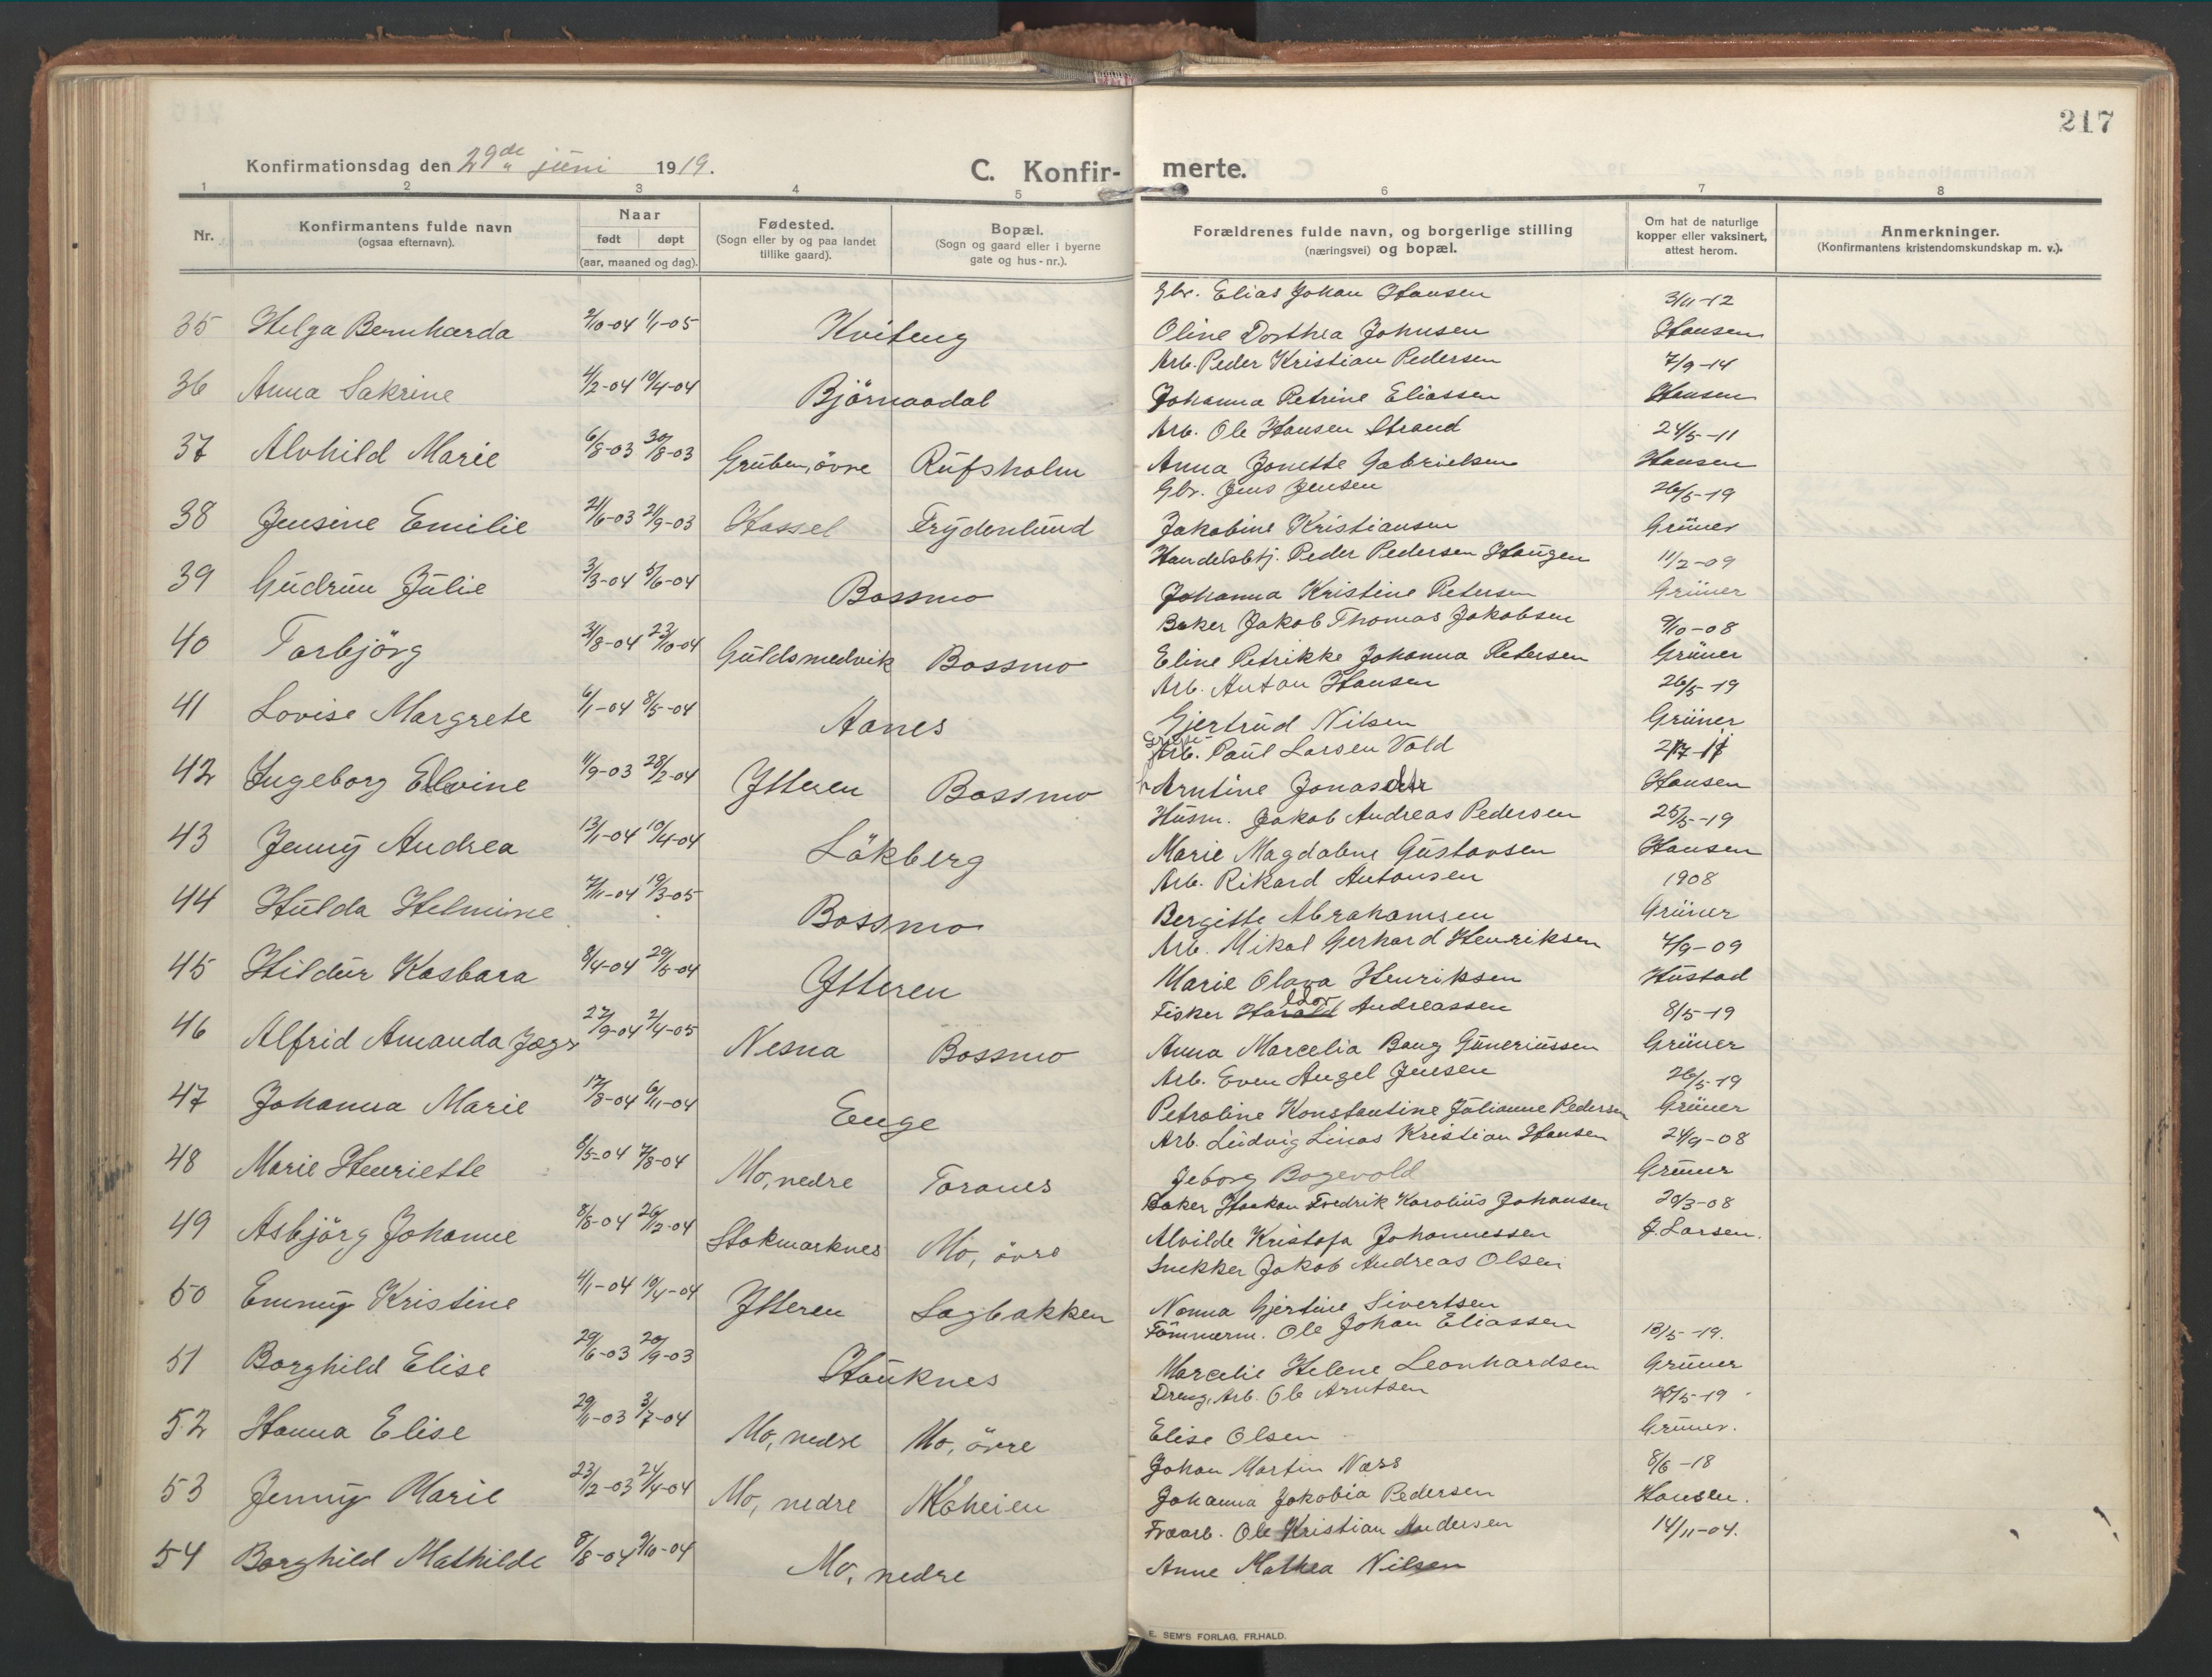 217
Konfirmationsdag den 29de juni 1919.
C. Konfirmerte.
1 2 3 4 5 6 7 8
Nr.
Konfirmantens fulde navn
(ogsaa efternavn).
Naar
født døpt
(aar, maaned og dag).
Fødested.
(Sogn eller by og paa landet
tillike gaard).
Bopæl.
(Sogn og gaard eller i byerne
gate og hus-nr.).
Forældrenes fulde navn, og borgerlige stilling
(næringsvei) og bopæl.
Om hat de naturlige
kopper eller vaksinert,
attest herom.
Anmerkninger.
(Konfirmantens kristendomskundskap m. v.).
Gbr. Elias Johan Hansen 3/11-12
35 Helga Bernharda 2/10-04 1/1-05 Kviteng Oline Dorthea Johnsen Hansen
Arb. Peder Kristian Pedersen 7/9-14
36 Anna Sakrine 4/2-04 10/4-04 Björnaadal Johanna Petrine Eliassen Hansen
Arb. Ole Hansen Strand 24/5-11
37 Alvhild Marie 6/8-03 30/8-03 Gruben, övre Rufsholm Anna Jonette Gabrielsen Hansen
Gbr. Jens Jensen 26/5-19
38 Jensine Emilie 21/6-03 21/9-03 Hassel Frydenlund Jakobine Kristiansen Grüner
Handelsbtj. Peder Pedersen Haugen 11/2-09
39 Gudrun Julie 3/3-04 5/6-04 Bossmo Johanna Kristine Petersen Grüner
Baker Jakob Thomas Jakobsen 9/10-08
40 Torbjörg 31/8-04 23/10-04 Guldsmedvik Bossmo Eline Petrikke Johanna Petersen Grüner
Arb. Anton Hansen 26/5-19
41 Lovise Margrete 6/1-04 8/5-04 Aanes Gjertrud Nilsen Grüner
Arb. Paul Larsen Vold
42 Ingeborg Elvine 11/9-03 28/2-04 Ytteren Bossmo Arntine Jonasdtr Hansen
Husm. Jakob Andreas Pedersen 25/5-19
43 Jenny Andrea 13/1-04 10/4-04 Läkberg Marie Magdalene Gustavsen Hansen
Arb. Rikard Antonsen 1908
44 Hulda Helmine 7/11-04 19/3-05 Bossmo Bergitte Abrahamsen Grüner
Arb. Mikal Gerhard Henriksen 4/9-09
45 Hildur Kasbara 8/4-04 29/5-04 Ytteren Marie Olava Henriksen Hustad
Fisker Haldor Andreassen 8/5-19
46 Alfrid Amanda 27/9-04 2/4-05 Nesna Bossmo Anna Marcelia Bang Guneriussen Grüner
Arb. Even Angel Jensen 26/5-19
47 Johanna Marie 17/8-04 6/11-04 Enge Petroline Konstantine Julianne Pedersen Grüner
Arb. Ludvig Linas Kristian Hansen 24/9-08
48 Marie Henriette 8/5-04 7/8-04 Mo, nedre Toranes Jeborg Bogevold Grüner
Baker Haakon Fredrik Karolius Johansen 20/3-08
49 Asbjörg Johanne 8/8-04 26/12-04 Stokmarknes Mo, övre Alvilde Kristofa Johannessen J. Larsen.
Snekker Jakob Andreas Olsen
50 Emmy Kristine 4/1-04 10/4-04 Ytteren Sagbakken Nonna Gjertine Sivertsen
Tömmerm. Ole Johan Eliassen 13/5-19.
51 Borghild Elise 29/6-03 20/9-03 Hauknes Marcelie Helene Leonhardsen Grüner
Dreng, Arb. Ole Arntsen 26/5-19
52 Hanna Elise 29/11-03 3/7-04 Mo, nedre Mo, övre Elise Olsen Grüner.
Johan Martin Næss 8/6-18
53 Jenny Marie 23/12-03 24/4-04 Mo, nedre Moheien Johanna Jakobia Pedersen Hansen.
Ole Kristian Andersen 14/11-04.
54 Borghild Mathilde 8/8-04 9/10-04 Mo, nedre Anne Mathea Nilsen
E. SEM'S FORLAG, FR.HALD.